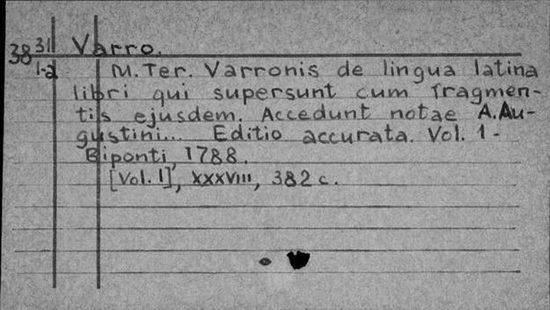 38 31 Varro.
1-2 M. Ter. Varronis de lingua latina
libri qui supersunt cum fragmen-
tis ejusdem. Accedunt notae A. Au-
gustini... Editio accurata. Vol. 1-
Biponti, 1788.
[Vol. 1], XXXVIII, 382 c.